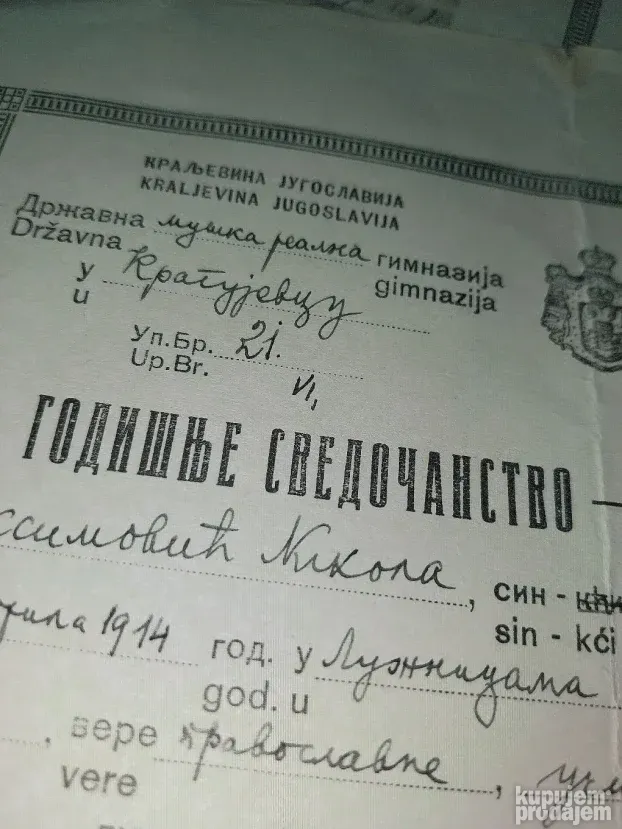 КРАЉЕВИНА ЈУГОСЛАВИЈА
KRALJEVINA JUGOSLAVIJA
Државна мушка реална гимназија
Državna gimnazija
у Крагујевцу
u
Уп.Бр. 21.
Up.Br. VI,
ГОДИШЊЕ СВЕДОЧАНСТВО —
симовић Никола, син -
sin - kći
1914 год. у Лужницама
god. u
, вере православне,
vere
kupujem
prodajem